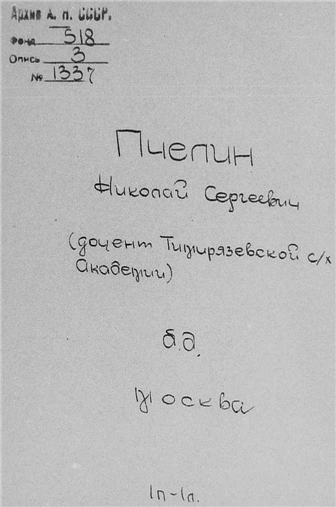 Архив А. Н. СССР.
Фонд 518
Опись 3
№ 1337
Пчелин
Николай Сергеевич
(доцент Тимирязевской с/х
Академии)
б.д.
Москва
1л-1л.